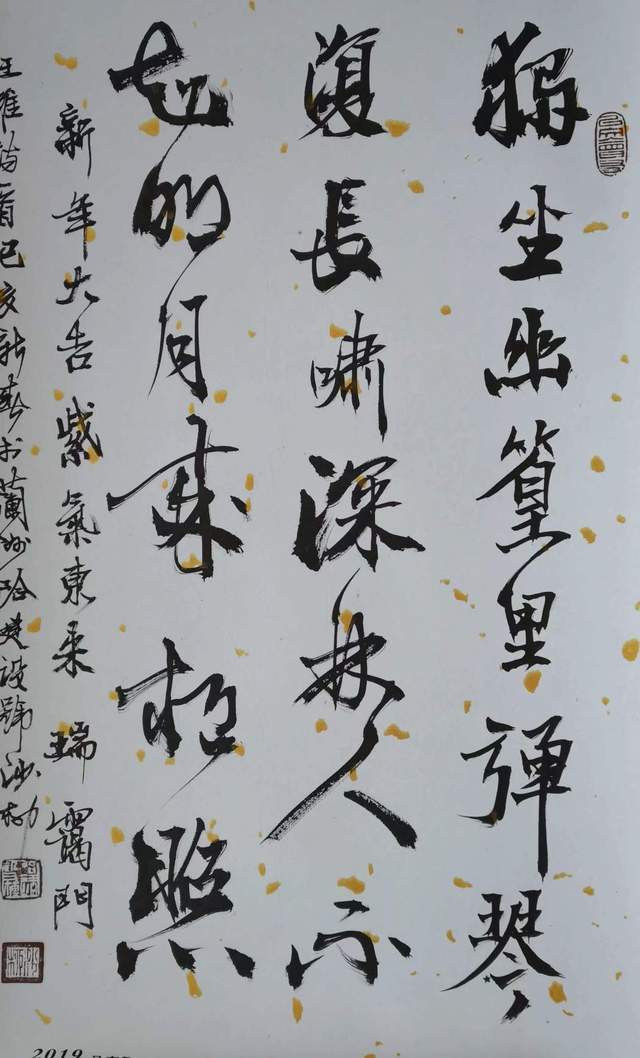 獨坐幽篁里彈琴
復長嘯深林人不
知明月來相照
新年大吉 紫氣東來 瑞靄門
王維詩一首己亥新春书蘭州
2019